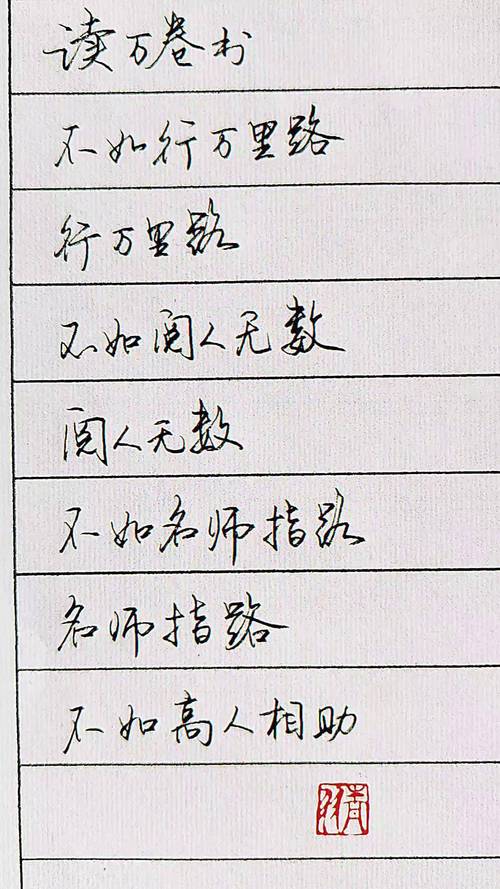 读万卷书
不如行万里路
行万里路
不如阅人无数
阅人无数
不如名师指路
名师指路
不如高人相助